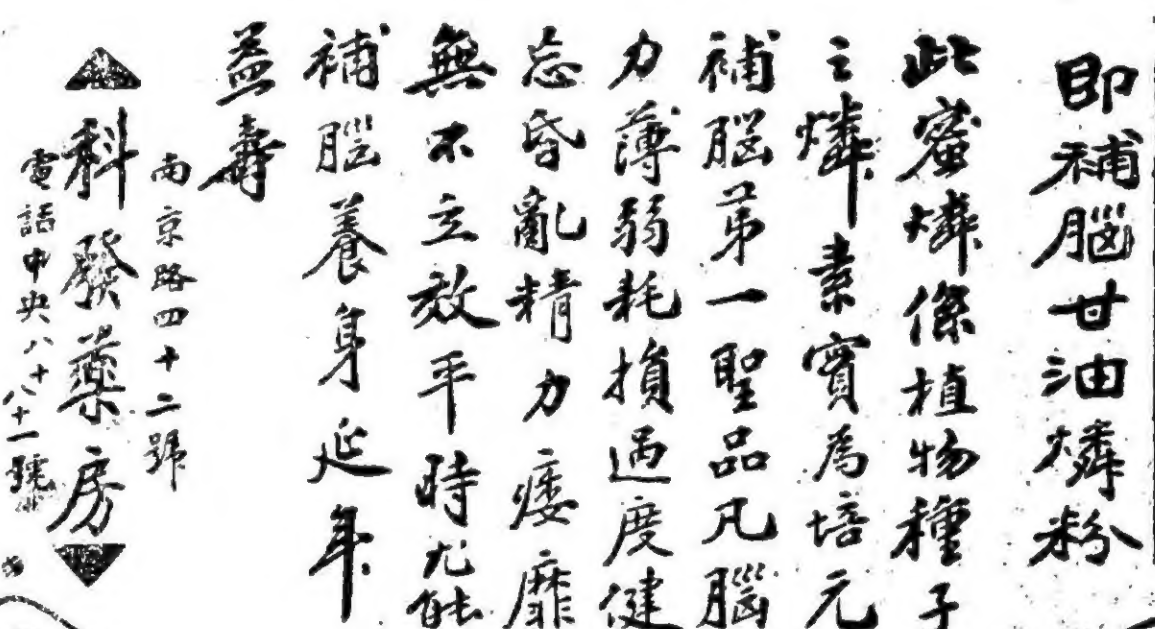 即補腦甘油燐粉
此蜜燐係植物種子
之燐素實為培元
補腦第一聖品凡腦
力薄弱耗損過度健
忘昏亂精力痿靡
無不立效平時尤能
補腦養身延年
益壽
南京路四十二號
科發藥房
電話中央八十
八十一號